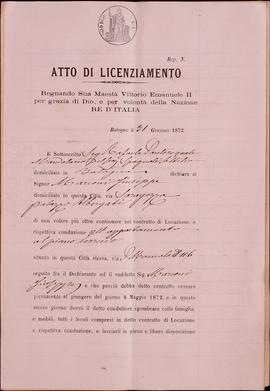 Rep. N.
ATTO DI LICENZIAMENTO
Regnando Sua Maestà Vittorio Emanuele II
per grazia di Dio, e per volontà della Nazione
RE D'ITALIA
Bologna li 31 Gennaro 1872
Il Sottoscritto Sig. Rafaele
domiciliato in Bologna dichiara al
Signor Marconi Giuseppe
domiciliato in questa Città, via
palazzo Albergati
di non volere più oltre continuare nel contratto di Locazione,
rispettiva conduzione dell'appartamento
al piano terreno
situato in questa Città stessa, via
seguito fra il Dichiarante ed il suddetto Sig. Marconi
Giuseppe e che perciò debba detto contratto cessare
pienamente al giungere del giorno 8 Maggio 1872, e in questo
stesso giorno dovrà il detto conduttore sgombrare colla famiglia,
e mobili, tutti i locali compresi in detto contratto di Locazione
e rispettiva conduzione, e lasciarli in piena e libera disposizione